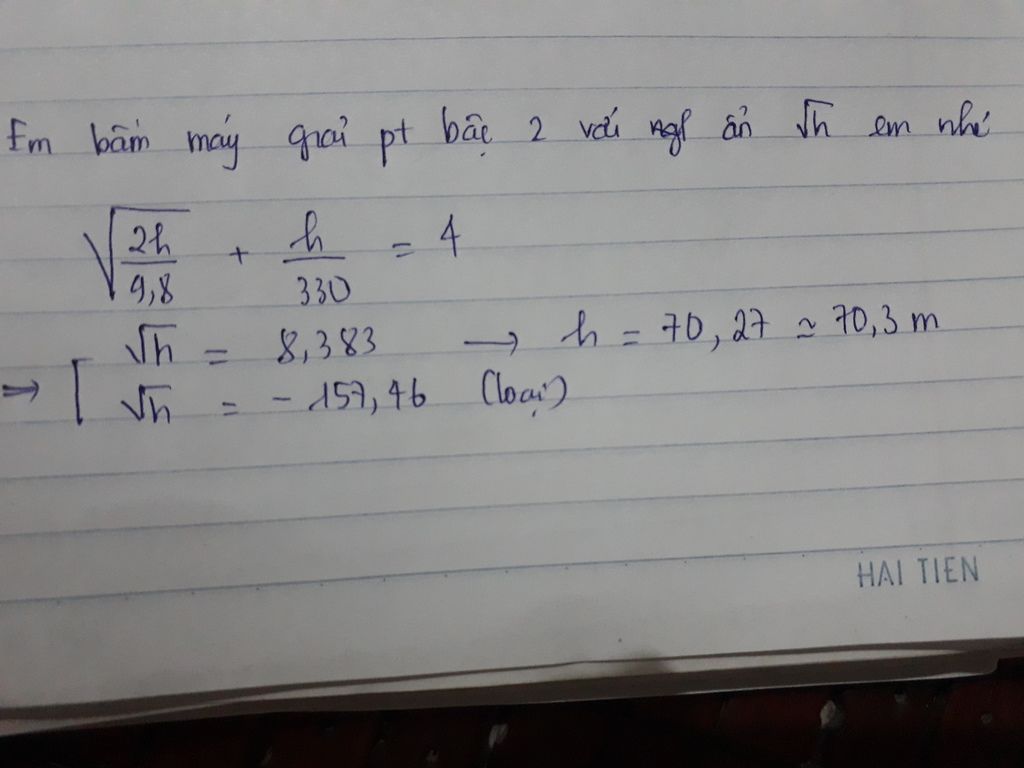 Em bấm máy giải pt bậc 2 với ngh ẩn √h em nhé
√(2h/9,8) + h/330 = 4
⇒ [ √h = 8,383 → h = 70,27 ≃ 70,3 m
√h = - 157,46 (loại)
HAI TIEN